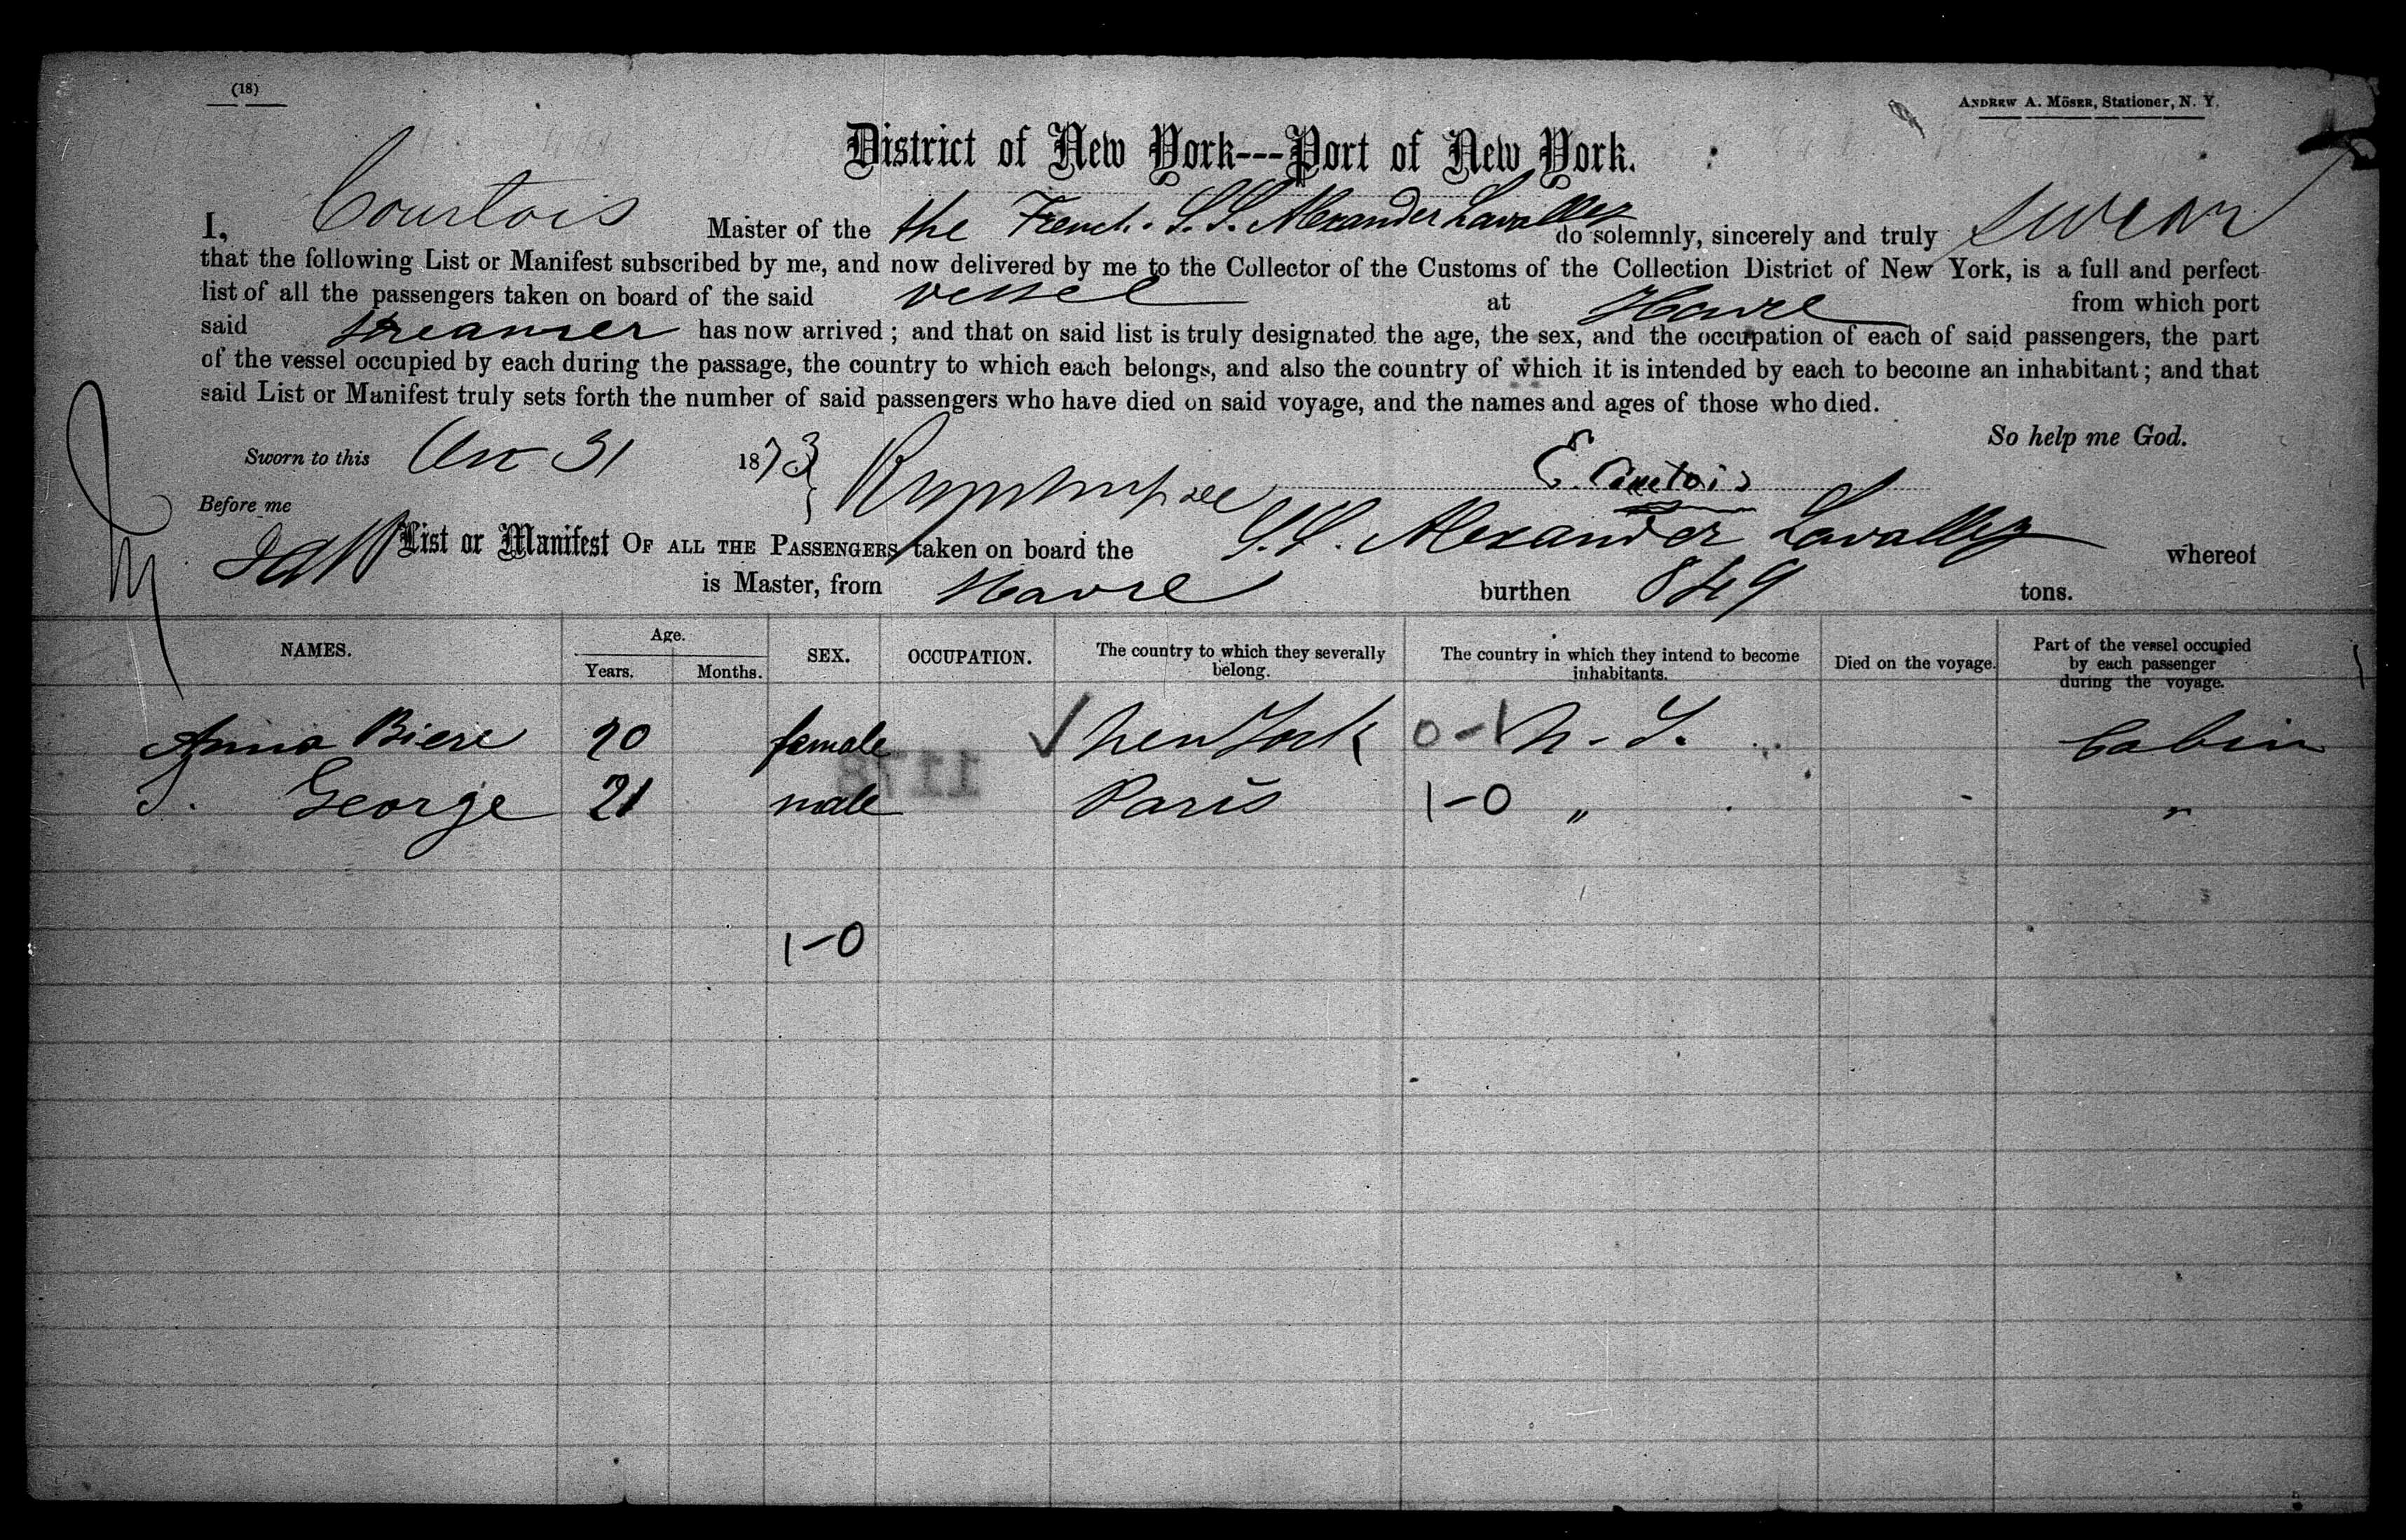 (18)
ANDREW A. MÖSER, Stationer, N. Y.
District of New York---Port of New York.
I, Courtois Master of the the French S.S. Alexander Lavalley do solemnly, sincerely and truly swear
that the following List or Manifest subscribed by me, and now delivered by me to the Collector of the Customs of the Collection District of New York, is a full and perfect
list of all the passengers taken on board of the said vessel at Havre from which port
said steamer has now arrived; and that on said list is truly designated the age, the sex, and the occupation of each of said passengers, the part
of the vessel occupied by each during the passage, the country to which each belongs, and also the country of which it is intended by each to become an inhabitant; and that
said List or Manifest truly sets forth the number of said passengers who have died on said voyage, and the names and ages of those who died.
So help me God.
Sworn to this 31 1873
E. Courtois
Before me
List or Manifest OF ALL THE PASSENGERS taken on board the S.S. Alexander Lavalley whereof
is Master, from Havre burthen 849 tons.
NAMES. Age. Years. Months. SEX. OCCUPATION. The country to which they severally belong. The country in which they intend to become inhabitants. Died on the voyage. Part of the vessel occupied by each passenger during the voyage.
Anna Biere 20 female ✓ New York 0-1 N-Y. Cabin
J. George 21 male Paris 1-0 " "
1178
1-0